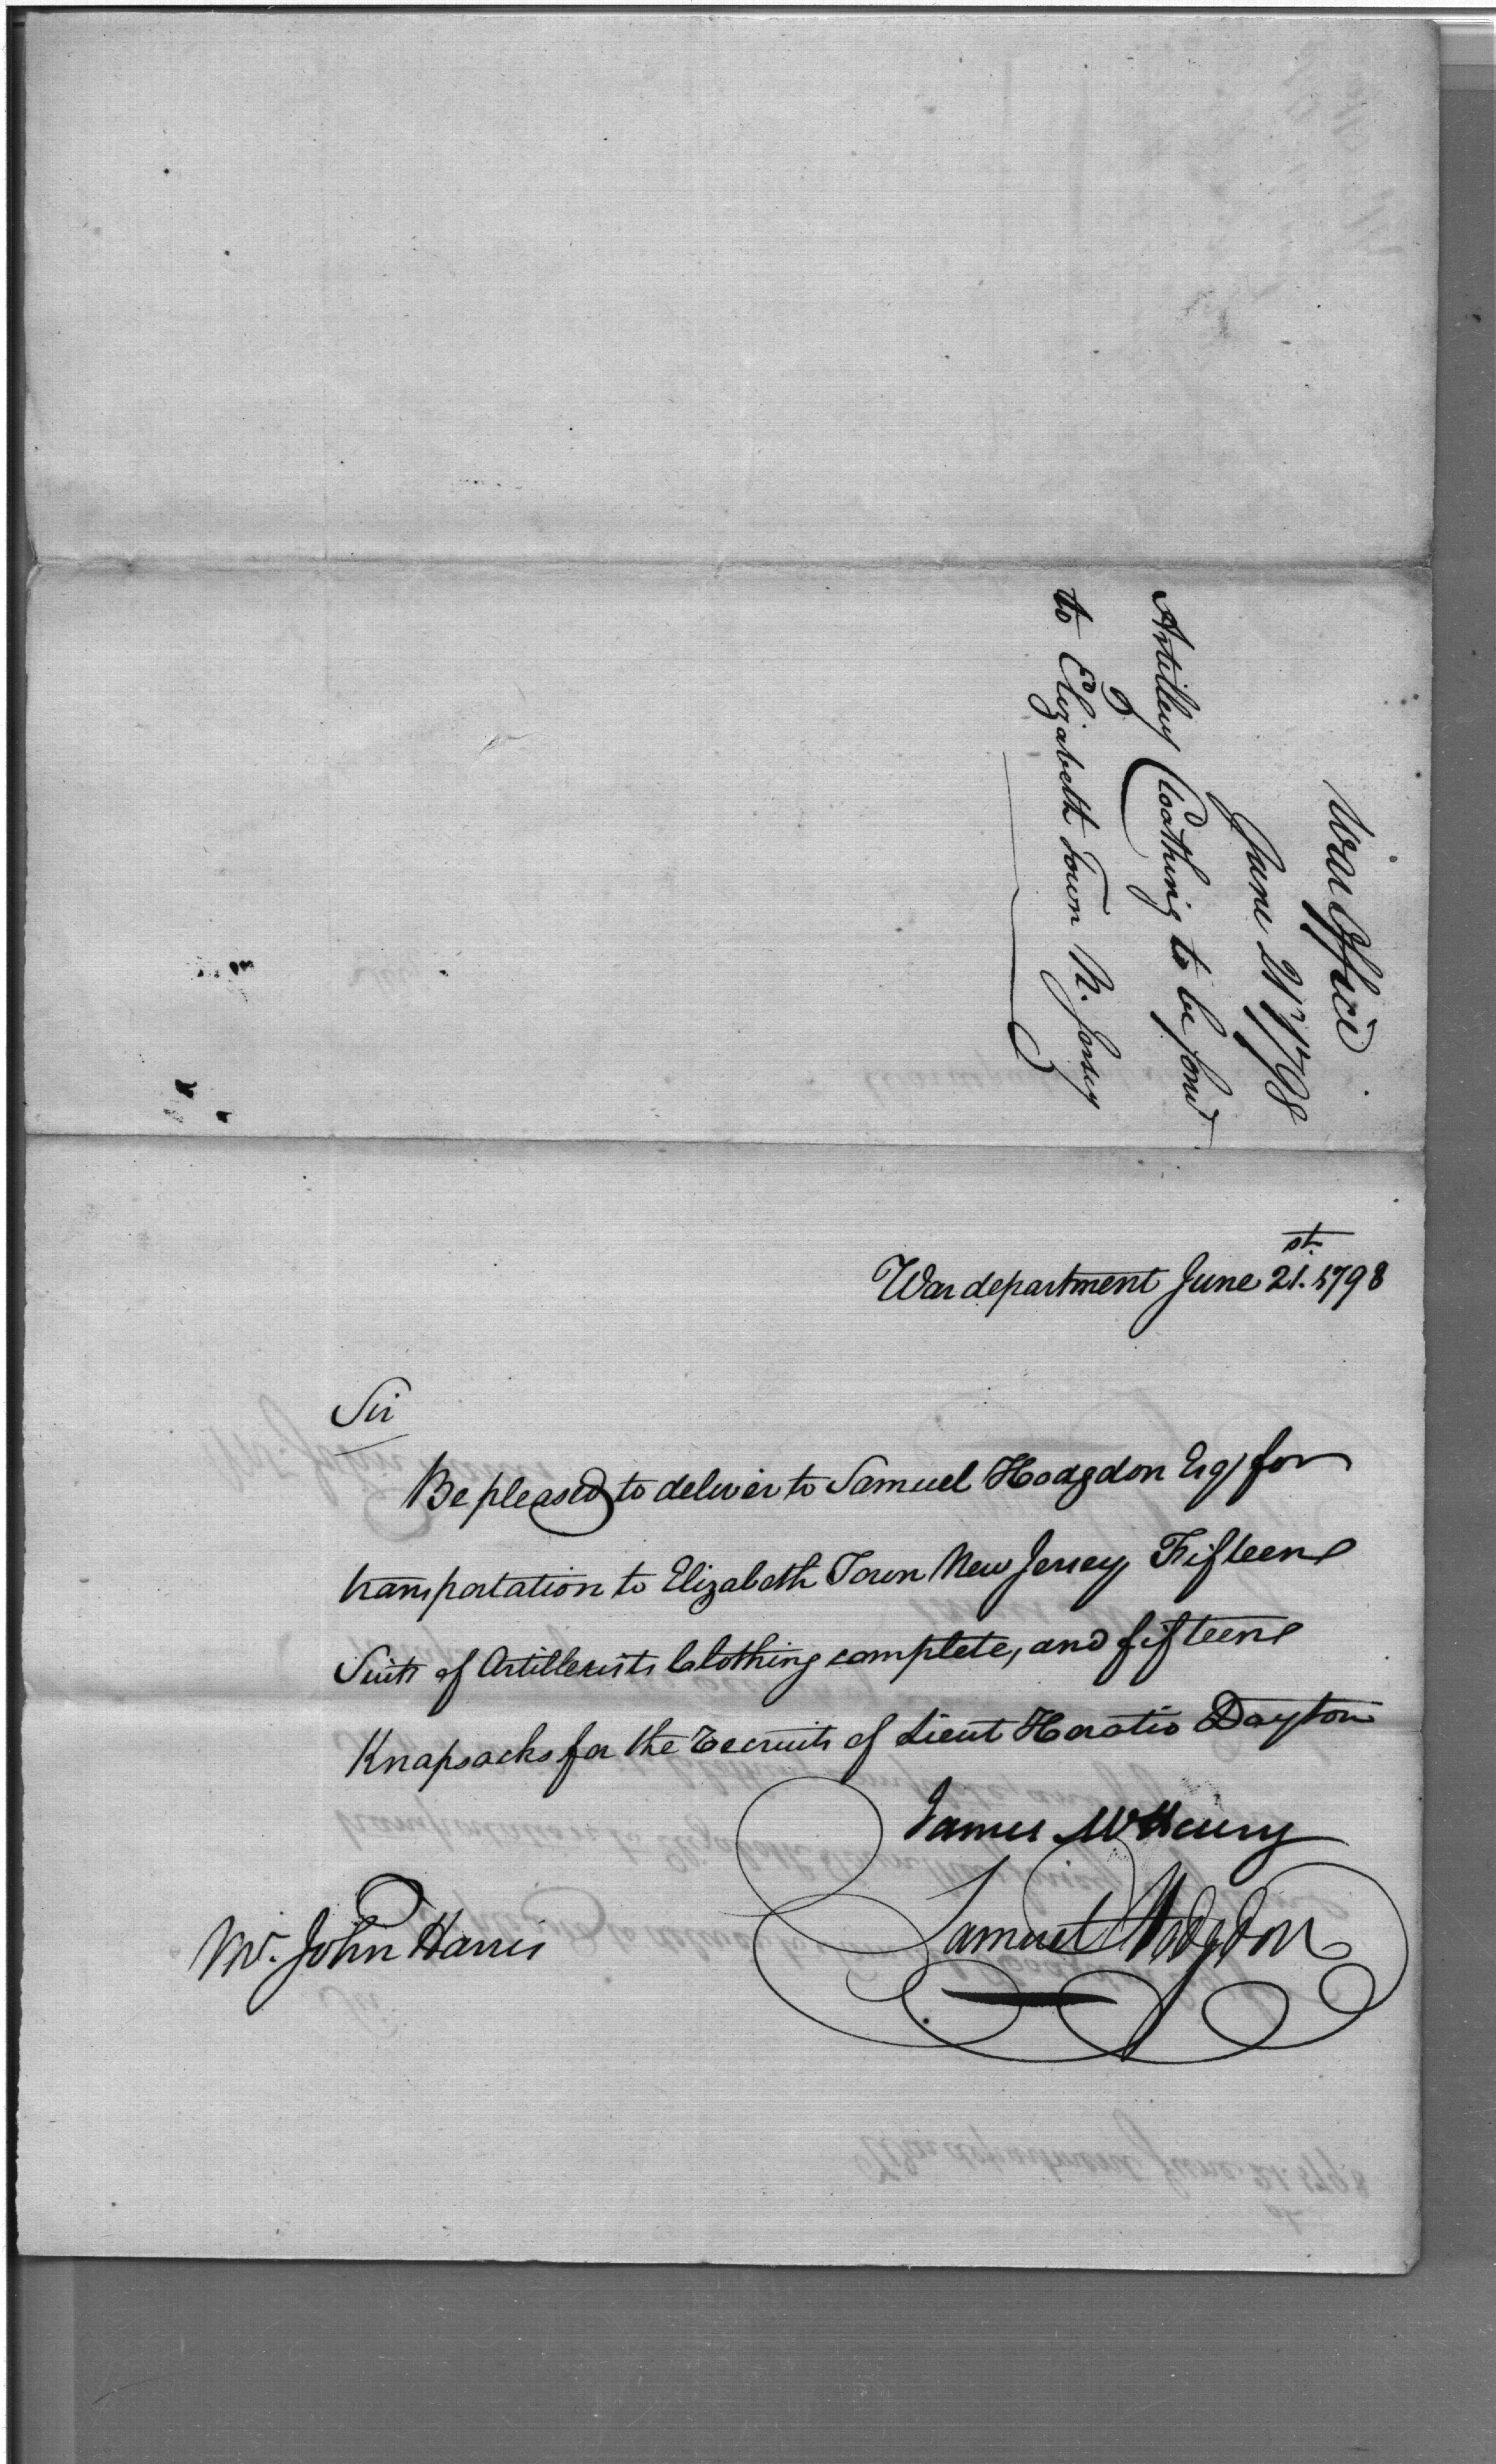 War Office
June 21 1798
Artillery Cloathing to be forwd
to Elizabeth Town N. Jersey
War department June 21st. 1798
Sir
Be pleased to deliver to Samuel Hodgdon Esq, for
transportation to Elizabeth Town New Jersey, Fifteen
Suits of Artillerists Clothing complete, and fifteen
Knapsacks for the Recruits of Lieut Horatio Dayton
James McHenry
Samuel Hodgdon
Mr. John Harris